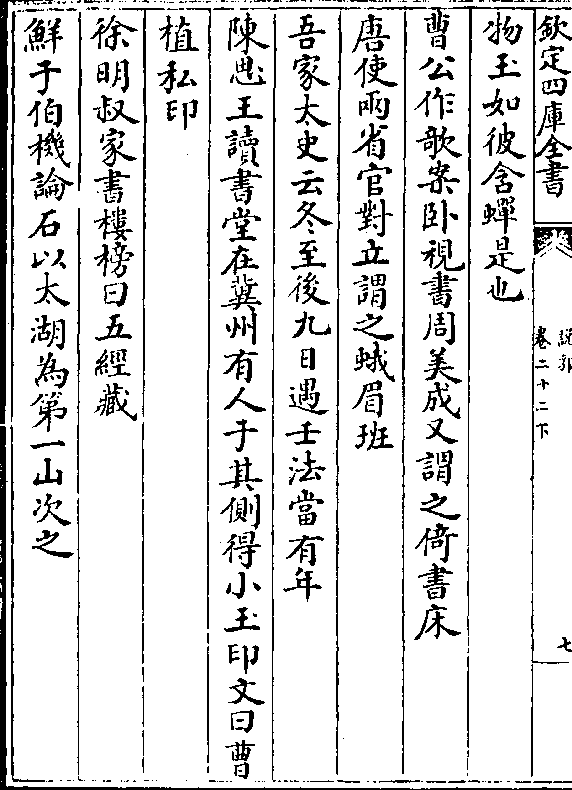 欽定四庫全書
說郛
卷二十二下
七
物玉如彼含蟬是也
曹公作歌案卧視書周美成又謂之倚書床
唐使兩省官對立謂之蛾眉班
吾家太史云冬至後九日遇壬法當有年
陳思王讀書堂在冀州有人于其側得小玉印文曰曹
植私印
徐明叔家書樓榜曰五經藏
鮮于伯機論石以太湖為第一山次之